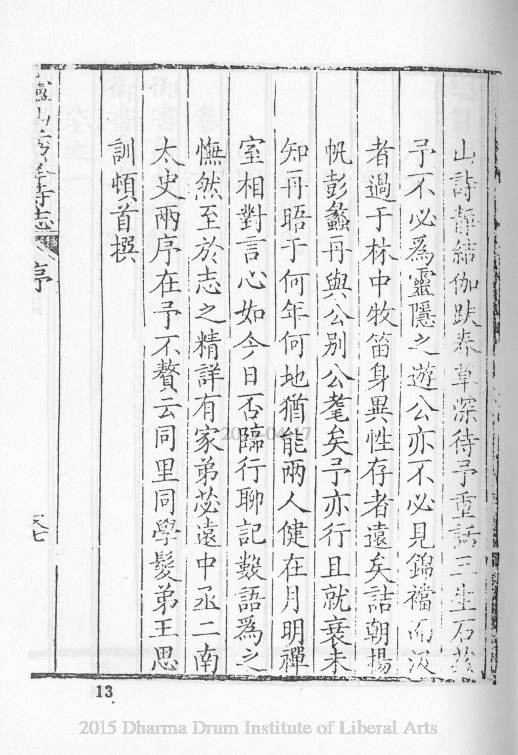 山詩靜結伽趺春草深待予重話三生石茲
予不必為靈隱之遊公亦不必見錦襠而汲
者過于林中牧笛身異性存者遠矣詰朝揚
帆彭蠡再與公別公耄矣予亦行且就衰未
知再晤于何年何地猶能兩人健在月明禪
室相對言心如今日否臨行聊記數語為之
憮然至於志之精詳有家弟苾遠中丞二南
太史兩序在予不贅云同里同學髮弟王思
訓頓首撰
序
13
2015 Dharma Drum Institute of Liberal Arts